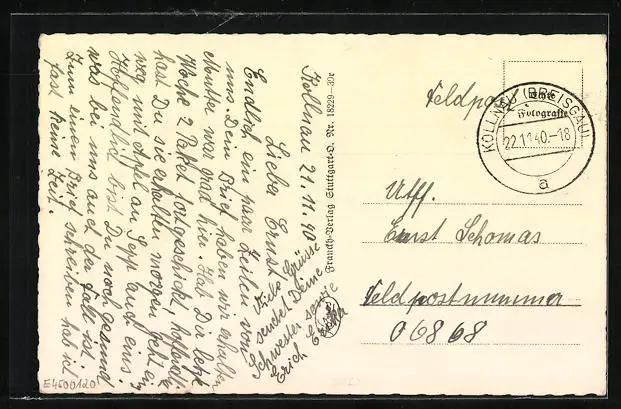 Kollnau 21.11.40
Lieber Ernst
Endlich ein paar Zeilen von
uns. Dein Brief haben wir erhalten
Mutter war grad hier. Hab Dir letzte
Woche 2 Paket fortgeschickt, hoffentlich
hast Du sie erhalten morgen geht ein
weg mit Apfel an Sepp auch eins.
Hoffendlich bist Du noch gesund
was bei uns auch der Fall ist.
Zum einen Brief schreiben hab ich
fast keine Zeit.
Viele Grüsse
sendet Deine
Schwester sowie
Erich
Franckh-Verlag Stuttgart-O. Nr. 18229
Feldpost
Echte
Fotografie
KOLLNAU (BREISGAU)
22.11.40.-18
a
Uffz.
Ernst Schomas
Feldpostnummer
06868
E4500120